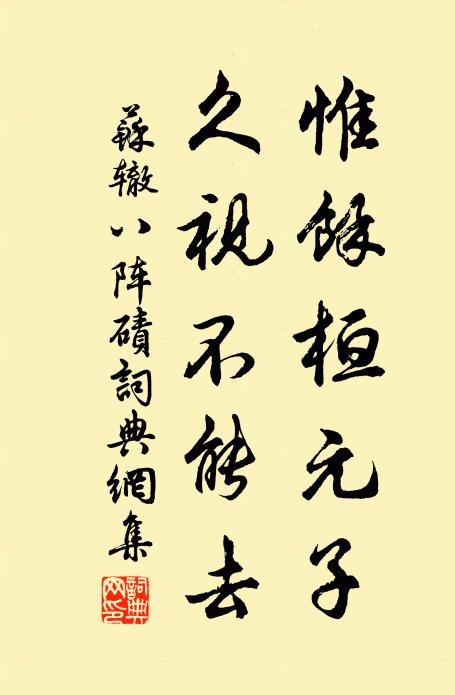 惟餘桓元子
久視不能去
蘇辙八阵磧詞典網集
詞典网印